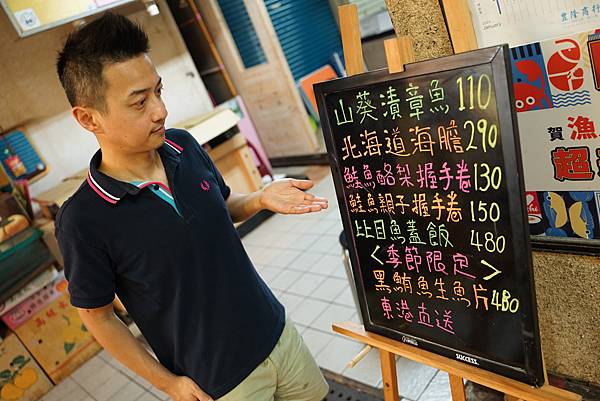 山葵漬章魚 110
北海道海膽 290
鮭魚酪梨握手卷 130
鮭魚親子握手卷 150
比目魚蓋飯 480
<季節限定>
黑鮪魚生魚片 480
東港直送
SUCCESS
豐隆商行
賀
漁
超